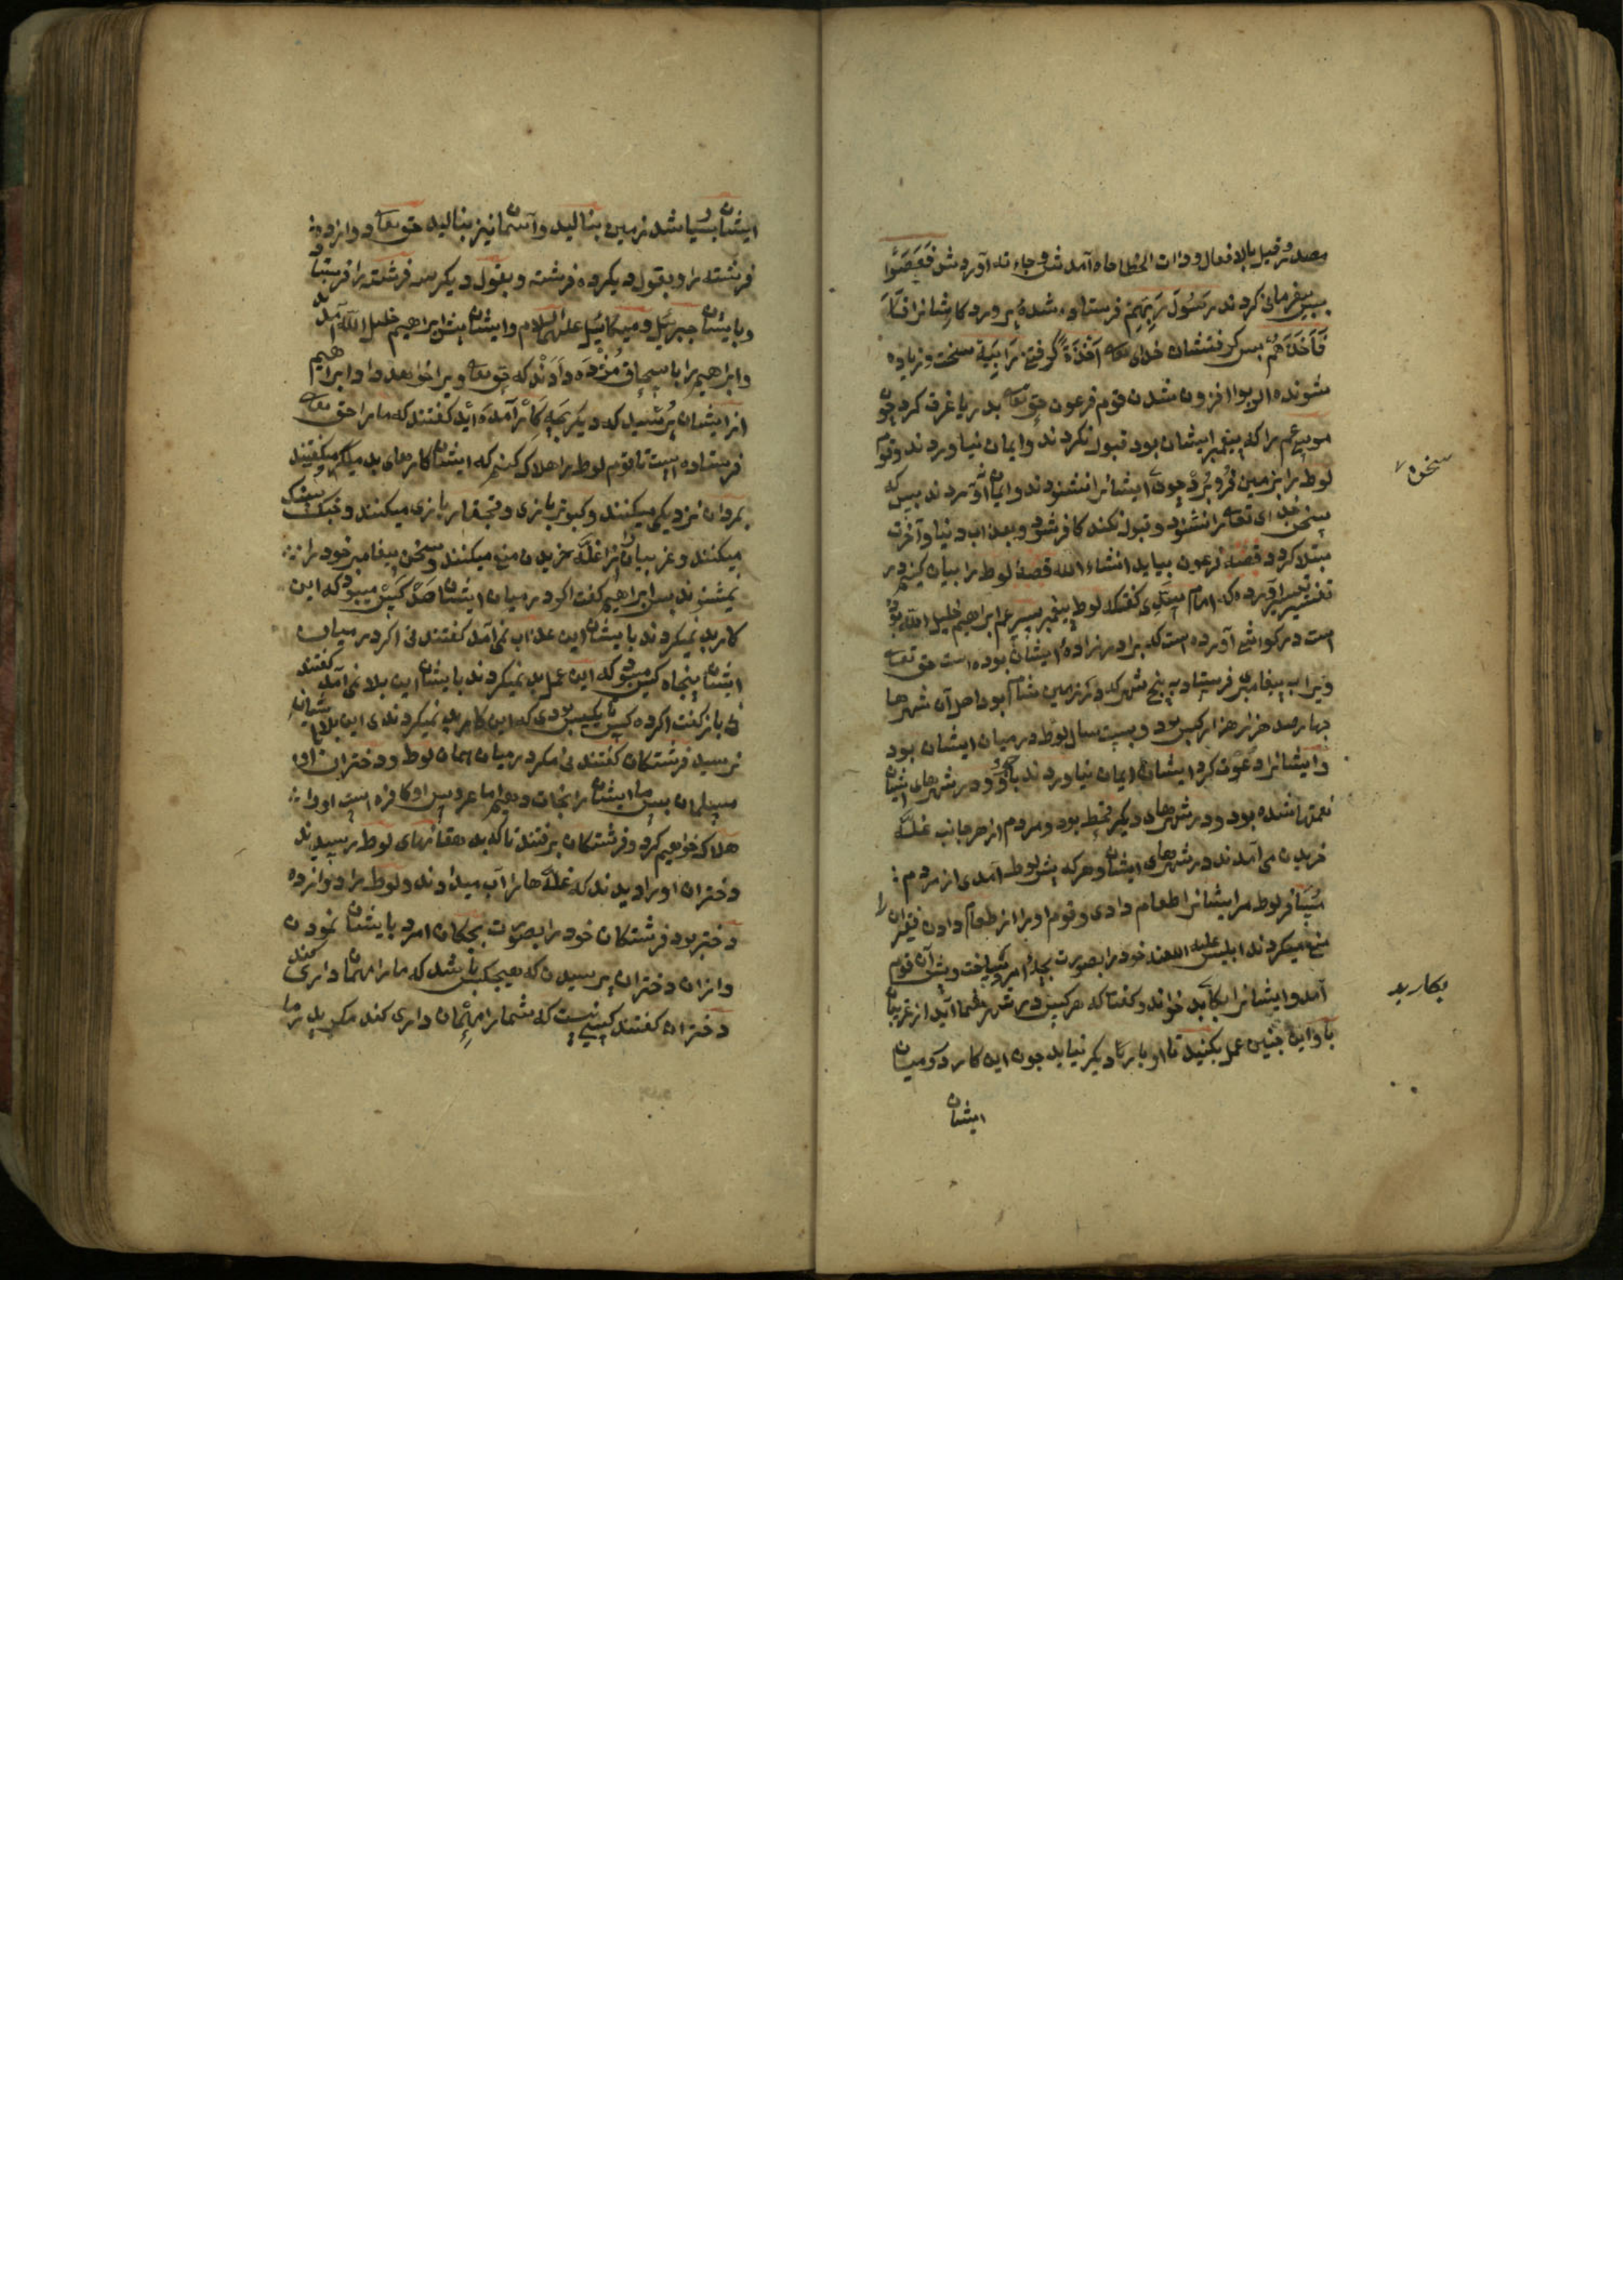 مصدر و قیل بالافعال و ذات الخطا جاء آمدش و جاء به آوردش فَعَصَوْا
پس بیفرمانی کردند رَسُولَ رَبِّهِمْ فرستاده شدهٔ پروردکارشانرا
فَأَخَذَهُمْ پس کرفتشان خدای تعالی أَخْذَةً کرفتنی رَابِيَةً سخت و زیاده
شونده الربوا افزون شدن قوم فرعون حق تعالی بدریا غرق کرد چون
موسی عم را که پیغمبر ایشان بود قبول نکردند و ایمان نیاوردند و قوم
لوط را بزمین فرو برد چون ایشانرا نشنودند و ایمان نیاوردند پس که
سخن خدای تعالی را نشنود و قبول نکند کافر شود و بعذاب دنیا و آخرت
مبتلا کردد قصهٔ فرعون بیاید انشاء الله قصهٔ لوط را بیان کنیم در
تفسیر آورده که امام سدی کفت که لوط پیغمبر پسر عم ابراهیم خلیل الله بوده
است در کواشی آورده است که برادر زادهٔ ایشان بوده است حق تعالی
ویرا به پیغامبری فرستاد به پنج شهر که در زمین شام بود اهل آن شهرها
چهارصد هزار هزار کس بود و بیست سال لوط در میان ایشان بود
و ایشانرا دعوت کرد ایشان ایمان نیاوردند باو و در شهرهای ایشان
نعمتها شده بود و در شهرهای دیکر قحط بود و مردم از هر جانب غله
خریدن می آمدند در شهرهای ایشان و هر که پیش لوط آمدی از مردم
مسافر لوط مر ایشانرا طعام دادی و قوم او را از طعام دادن فقیران را
منع میکردند ابلیس علیه اللعنه خود را بصورت بچهٔ امرد ساخت و پیش آن قوم
آمد و ایشانرا بکار بد خواند و کفت که هر کس در شهر شما آید از غریبان
با او این چنین عمل بکنید تا او بار دیکر نیاید چون این کار در میان
ایشان
سخن
بکار بد
ایشان بسیار شد زمین بنالید و آسمان نیز بنالید حق تعالی دوازده
فرشته را و بقول دیکر ده فرشته و بقول دیکر سه فرشته را فرستاد
و بایشان جبرئیل و میکائیل علیهما السلام و ایشان پیش ابراهیم خلیل الله آمدند
و ابراهیم را باسحاق مژده دادند که حق تعالی ویرا خواهد داد ابراهیم
از ایشان پرسید که دیکر بچه کار آمده اید کفتند که ما را حق تعالی
فرستاده است تا قوم لوط را هلاک کنیم که ایشان کارهای بد میکنند
بمردان نزدیکی میکنند و کبوتر بازی و قمار بازی میکنند
میکنند و غریبانرا از غله خریدن منع میکنند و سخن پیغامبر خود را
نمیشنوند پس ابراهیم کفت اکر در میان ایشان صد کس میبود که این
کار بد نمیکردند بایشان این عذاب نمی آمد کفتند نی اکر در میان
ایشان پنجاه کس میبود که این عمل بد نمیکردند بایشان این بلا نمی آمد کفتند
نی باز کفت اکر ده کس یا یک کس بودی که این کار بد نمیکردندی این بلا بایشان
نرسید فرشتکان کفتند نی مکر در میان همان لوط و دختران او
مسلمان پس ما ایشانرا نجات دهیم اما عروس او کافره است او را
هلاک خواهیم کرد و فرشتکان برفتند تا که به دهقانهای لوط رسیدند
دختران او را دیدند که غلها را آب میدادند و لوط را دوازده
دختر بود فرشتکان خود را بصورت بچکان امرد بایشان نمودن
و از ان دختران پرسیدن که هیچکس باشد که ما را مهمان داری کند
دختران کفتند کسی نیست که شما را مهمان داری کند مکر پدر ما